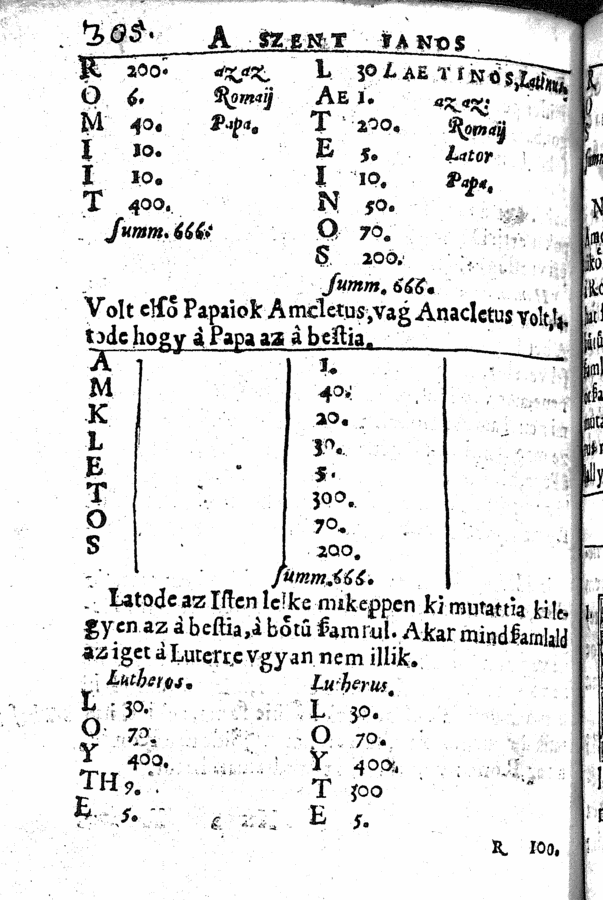 305. A SZENT IANOS
R 200. azaz L 30 LAETINOS, Latinus,
O 6. Romaij AE 1. azaz:
M 40. Papa. T 200. Romaij
I 10. E 5. Lator
I 10. I 10. Papa.
T 400. N 50.
summ. 666: O 70.
S 200.
summ. 666.
Volt első Papaiok Amcletus, vag Anacletus volt, la-
tode hogy à Papa az à bestia.
A 1.
M 40.
K 20.
L 30.
E 5.
T 300.
O 70.
S 200.
summ. 666.
Latode az Isten lelke mikeppen ki mutattia ki le-
gyen az à bestia, à bőtű ßamrul. Akar mind ßamlald
az iget à Luterre vgyan nem illik.
Lutheros. Lutherus.
L 30. L 30.
O 70. O 70.
Y 400. Y 400.
TH 9. T 300
E 5. E 5.
R 100.